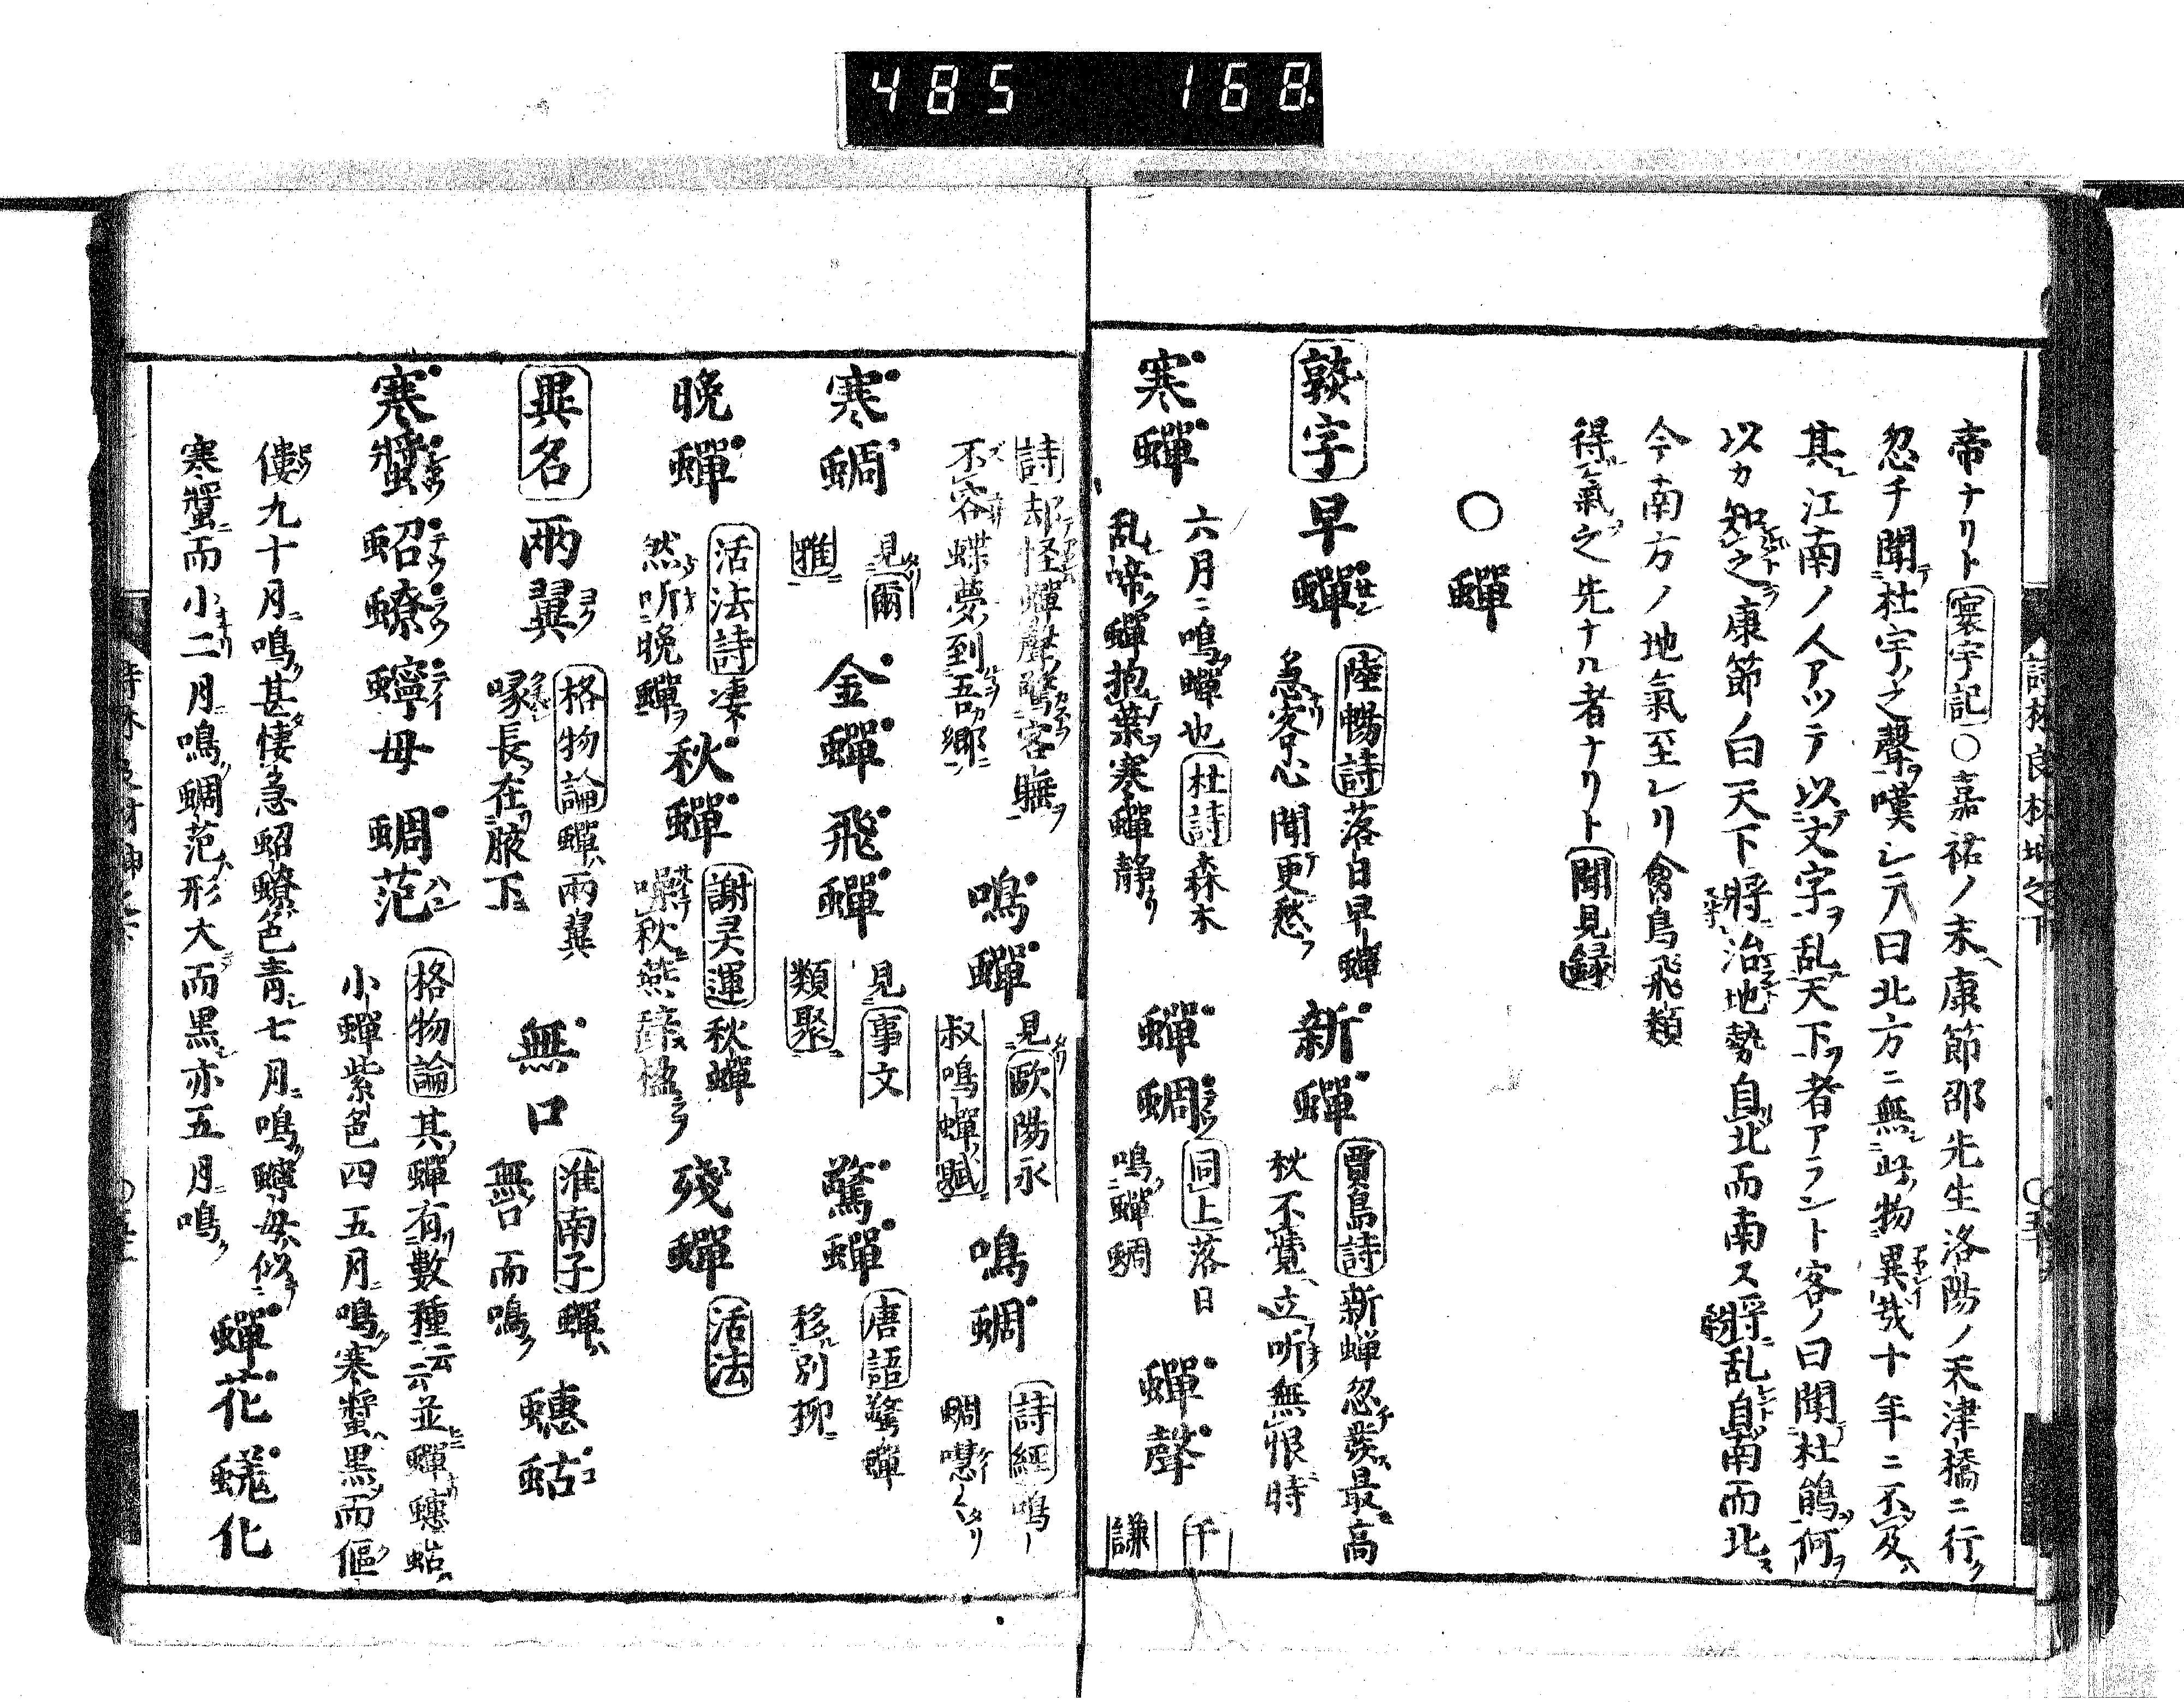 485 168
帝ナリト寰宇記○嘉祐ノ末康節邵先生洛陽ノ天津橋ニ行
忽チ聞杜宇之聲嘆シテ曰北方ニ無此物異哉十年ニ不及
其江南ノ人アツテ以文字乱天下者アラント客ノ曰聞杜鵑何
以カ知之康節ノ曰天下將治地勢自北而南ス將乱自南而北
今南方ノ地氣至レリ禽鳥飛類
得氣之先ナル者ナリト聞見録
○蟬
熟字 早蟬 陸暢詩落日早蟬
急客心聞更愁 新蟬 賈島詩新蟬忽發最高
秋不覺立听無恨時
寒蟬 六月ニ鳴蟬也杜詩森木
乱啼蟬抱葉寒蟬静 蟬蜩 同上落日
鳴蟬蜩 蟬聲 千
謙
詩却怪蟬聲驚客
不容蝶夢到吾鄉 鳴蟬 見歐陽永
叔鳴蟬賦 鳴蜩 詩經鳴
蜩嘒く
寒蜩 見爾
雅 金蟬飛蟬 見事文
類聚 驚蟬 唐語驚蟬
移別柳
晚蟬 活法詩凄
然听晚蟬 秋蟬 謝灵運秋蟬
噪秋燕辞楹 殘蟬 活法
異名 兩翼 格物論蟬兩翼
喙長在腋下 無口 淮南子蟬
無口而鳴 蟪蛄
寒螿 蛁蟟 蟧母 蜩范 格物論其蟬有數種云云並蟬蟪蛄
小蟬紫色四五月鳴寒螿黒而傴
僂九十月鳴甚悽急蛁蟟色青七月鳴母似
寒螿而小二月鳴蜩范形大而黒亦五月鳴 蟬花 化